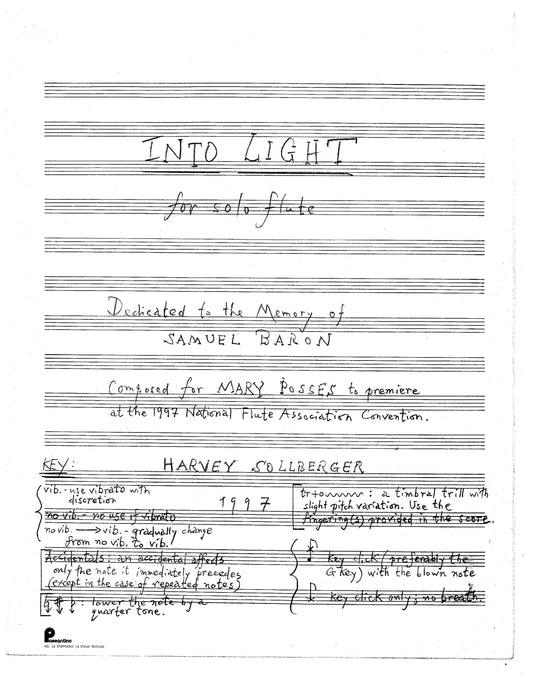 INTO LIGHT
for solo flute
Dedicated to the Memory of
SAMUEL BARON
Composed for MARY POSSES to premiere
at the 1997 National Flute Association Convention.
KEY:
HARVEY SOLLBERGER
1997
vib. - use vibrato with
discretion
no vib. - no use of vibrato
no vib. → vib. - gradually change
from no vib. to vib.
Accidentals: an accidental affects
only the note it immediately precedes
(except in the case of repeated notes)
: lower the note by a
quarter tone.
tr+o : a timbral trill with
slight pitch variation. Use the
fingering(s) provided in the score.
key click (preferably the
G Key) with the blown note
key click only; no breath.
Passantino